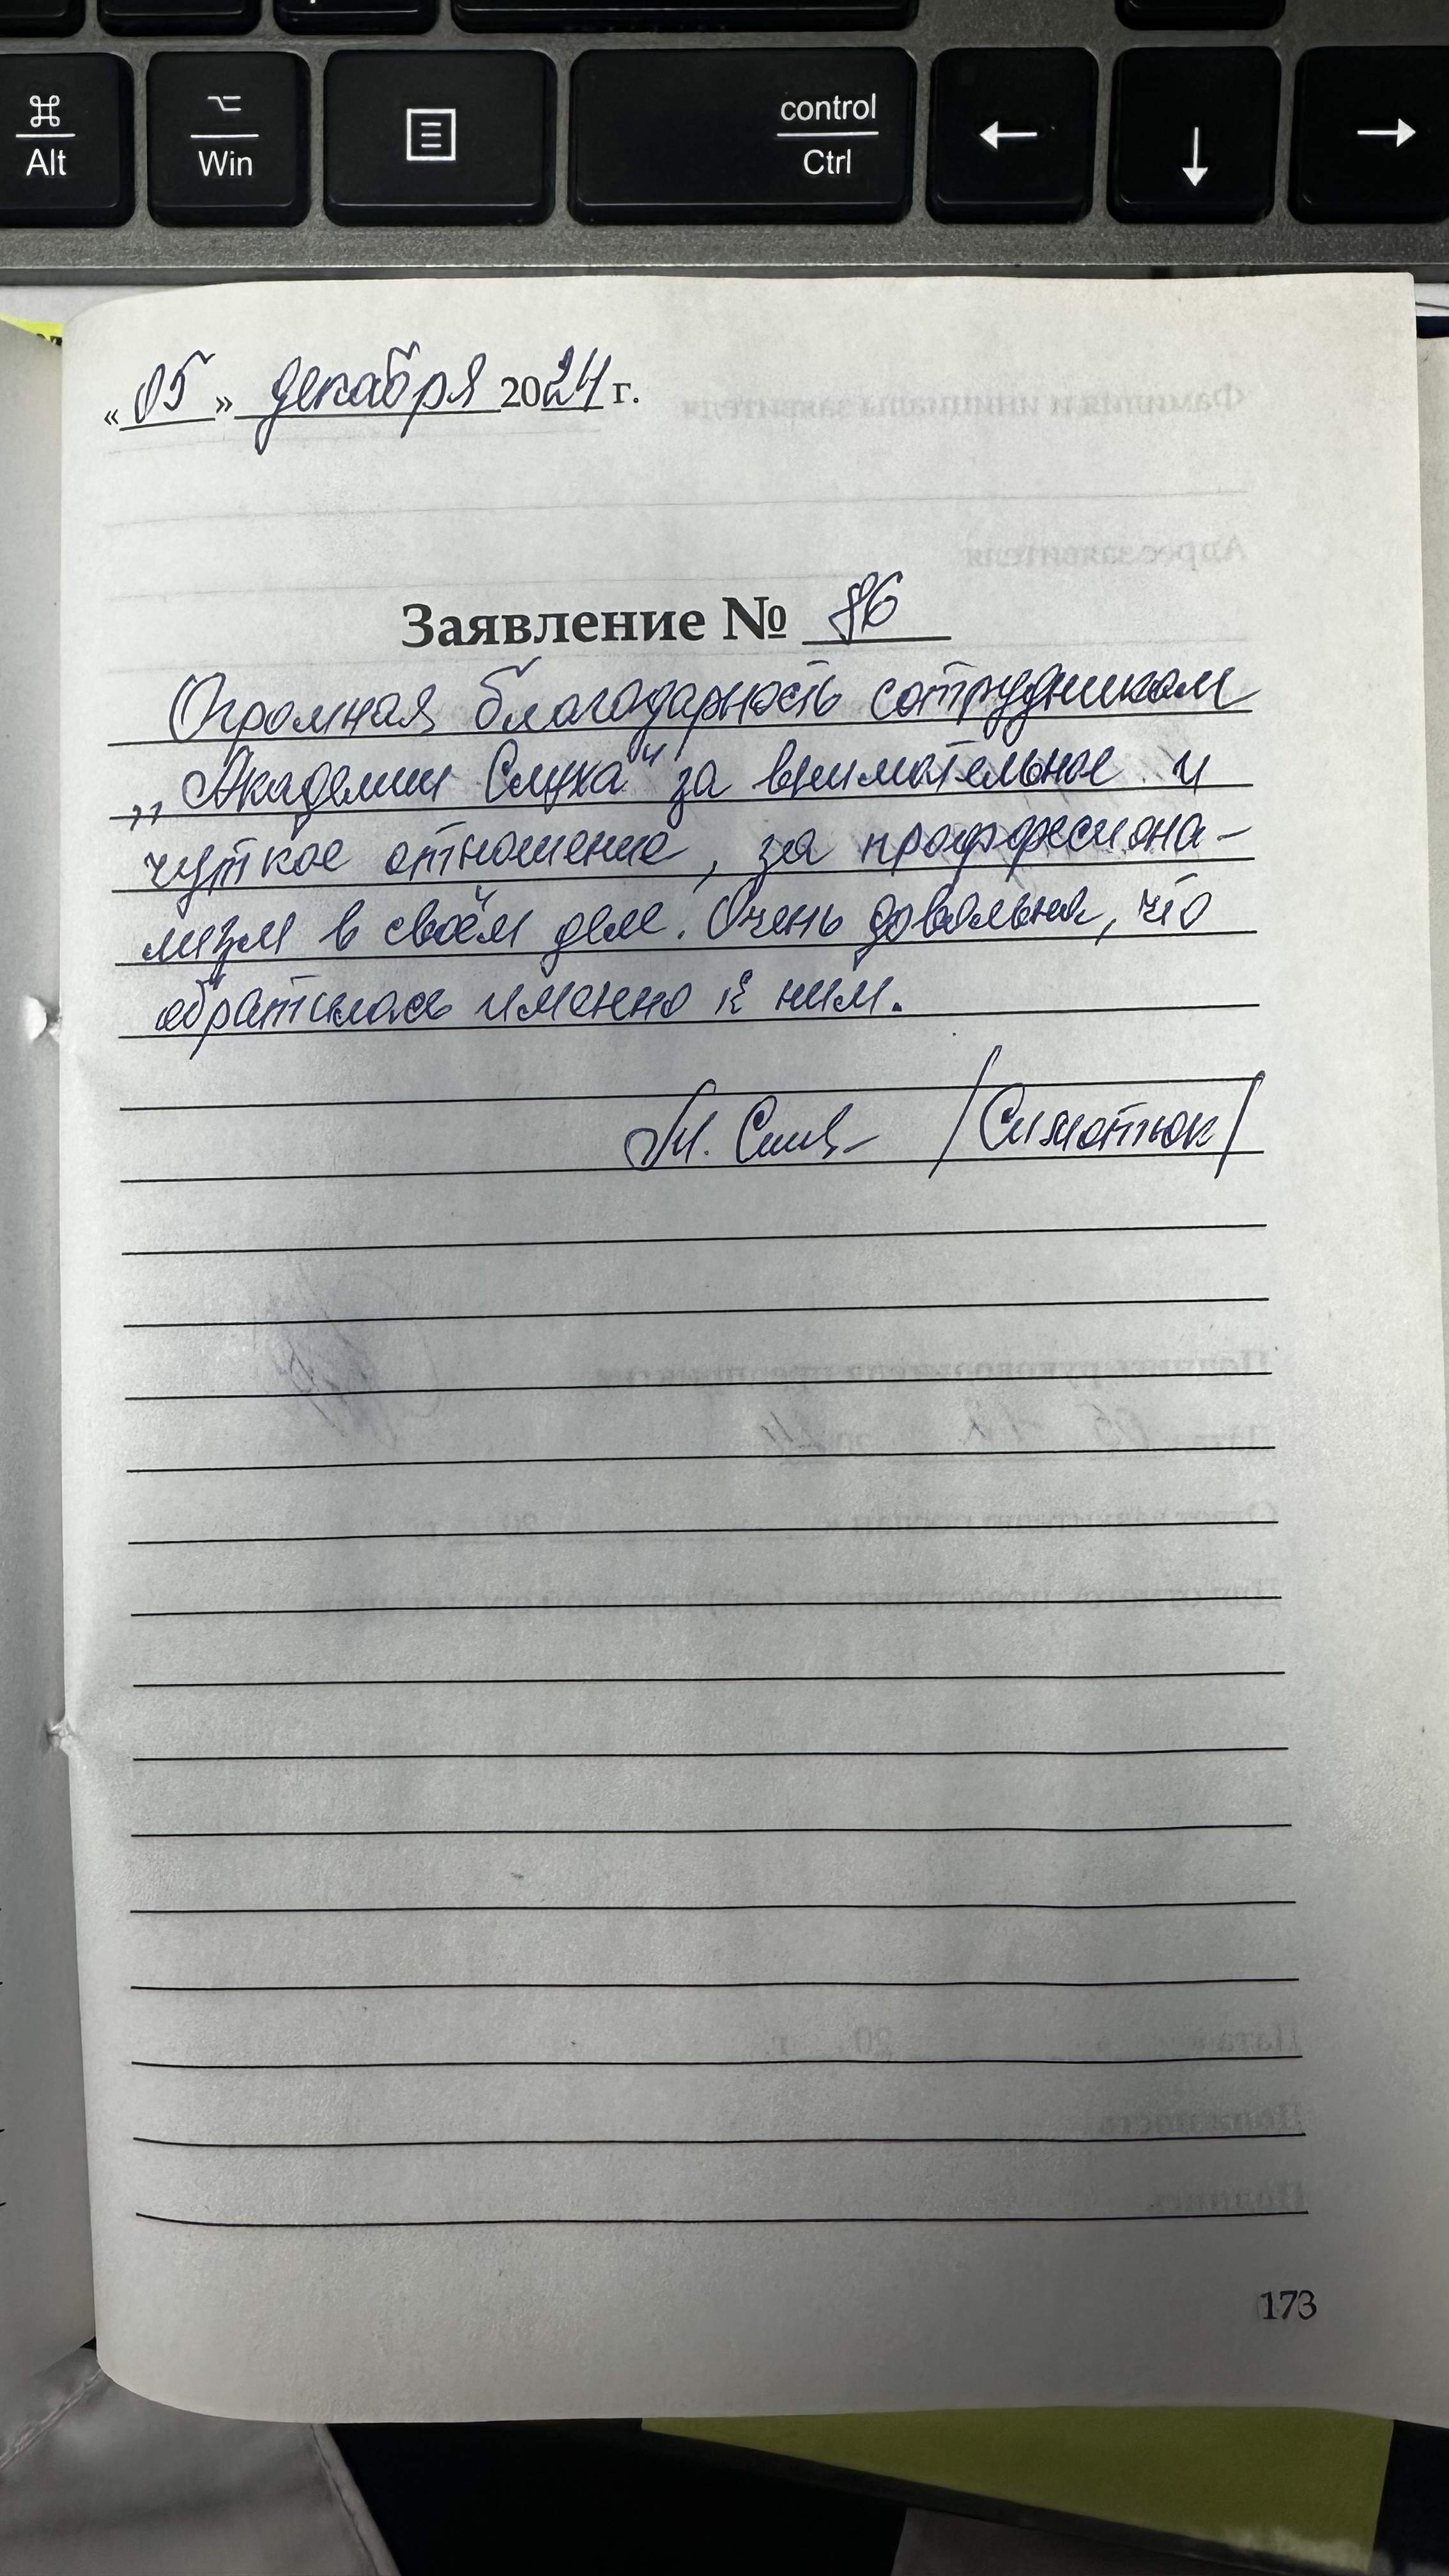 ⌘
Alt
⌥
Win
control
Ctrl
←
↓
→
«05» декабря 2024 г.
Заявление № 86
Огромная благодарность сотрудникам
„Академии Слуха" за внимательное и
чуткое отношение, за профессиона-
лизм в своём деле. Очень довольна, что
обратилась именно к ним.
/Симотюк/
173